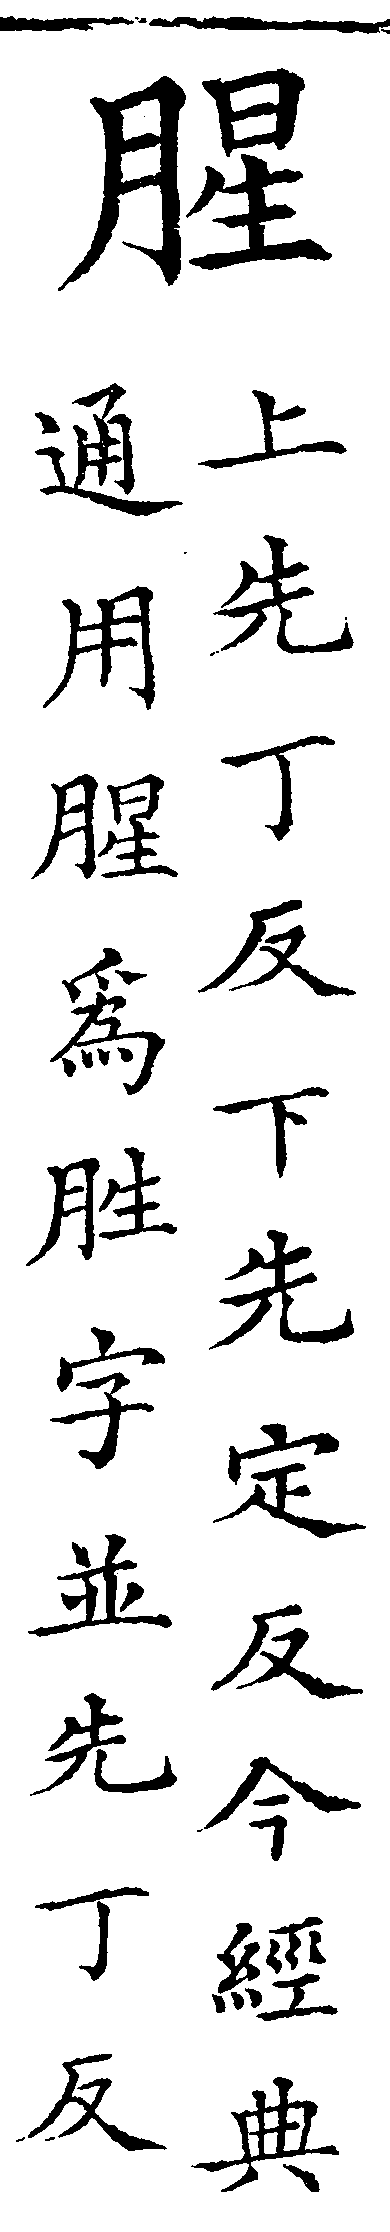 腥
上先丁反下先定反今經典
通用腥為胜字並先丁反